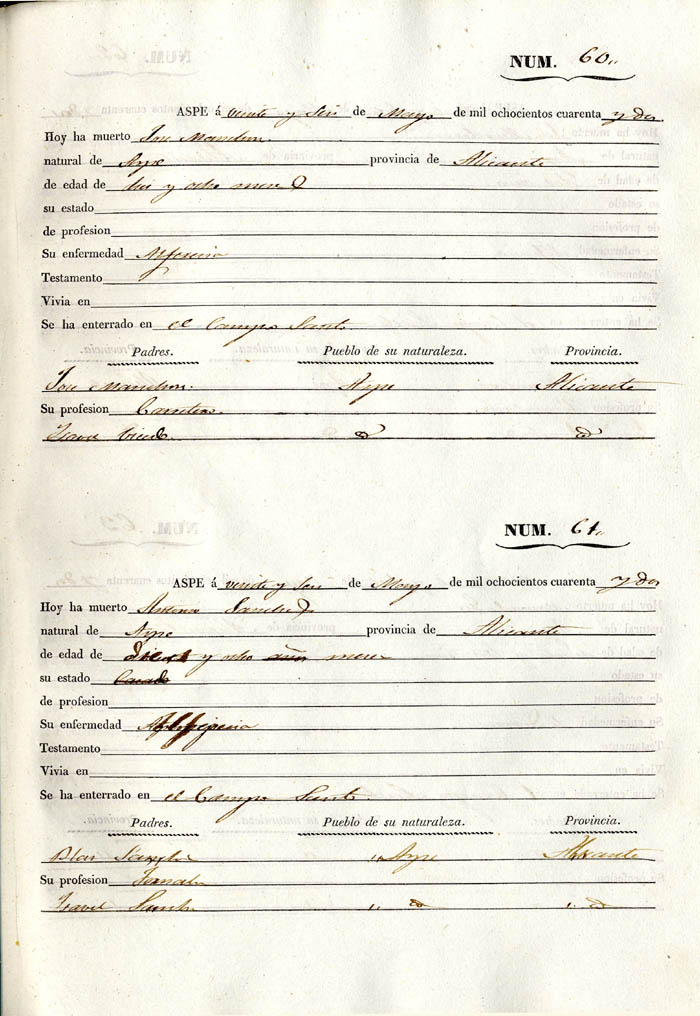 NUM. 60
ASPE á veinte y seis de Mayo de mil ochocientos cuarenta y dos
Hoy ha muerto Jose
natural de Aspe provincia de Alicante
de edad de diez y ocho meses
su estado
de profesion
Su enfermedad Alferecia
Testamento
Vivia en
Se ha enterrado en el Campo Santo
Padres. Pueblo de su naturaleza. Provincia.
Jose Aspe Alicante
Su profesion

NUM. 61
ASPE á veinte y seis de Mayo de mil ochocientos cuarenta y dos
Hoy ha muerto Antonia Sanchez
natural de Aspe provincia de Alicante
de edad de Diez y ocho años meses
su estado
de profesion
Su enfermedad Alferecia
Testamento
Vivia en
Se ha enterrado en el Campo Santo
Padres. Pueblo de su naturaleza. Provincia.
Blas Sanchez Aspe Alicante
Su profesion